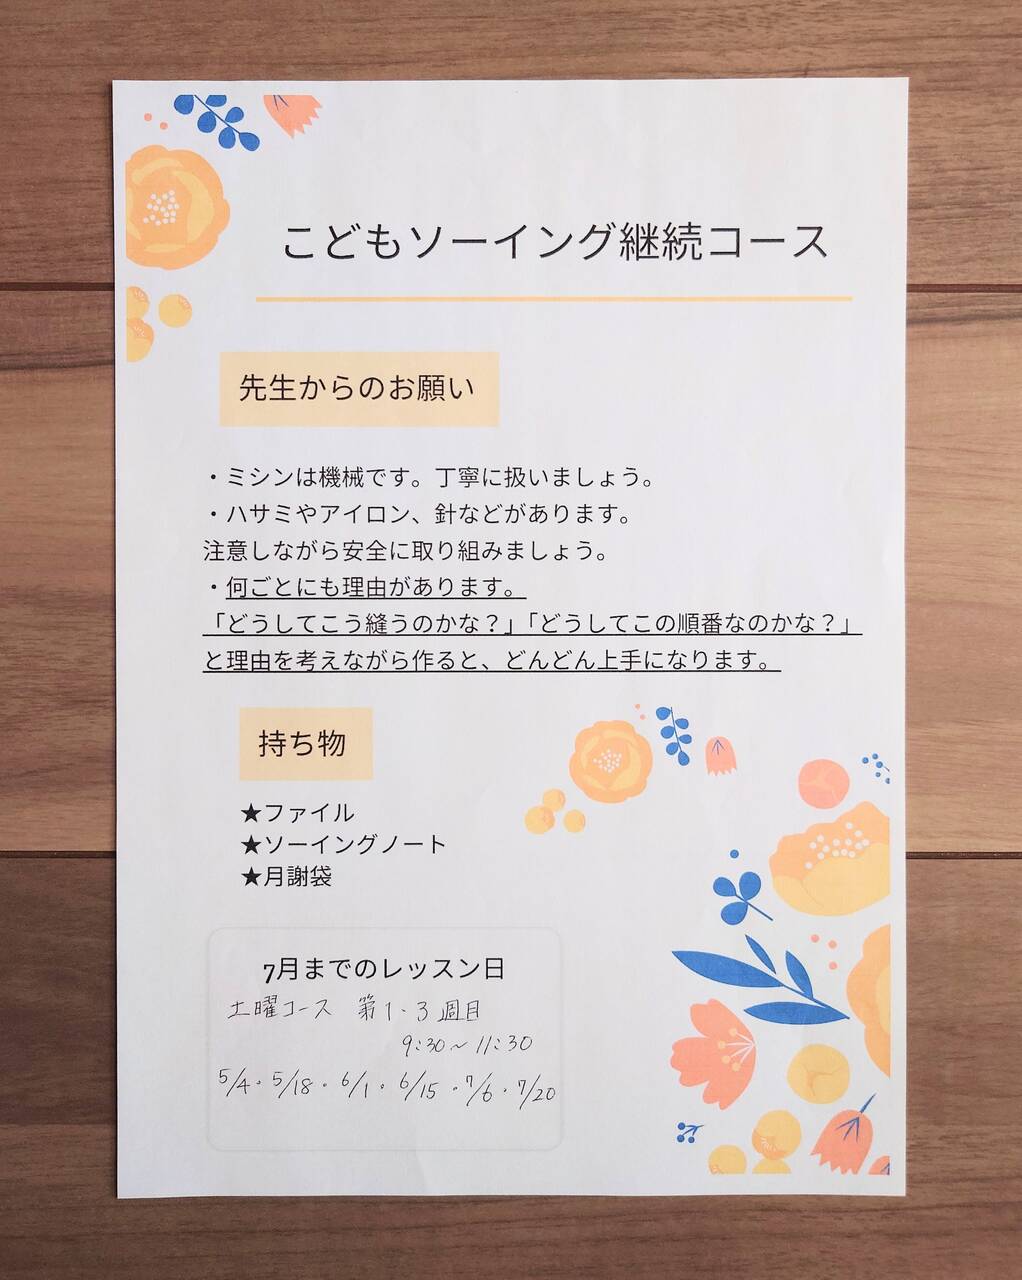 こどもソーイング継続コース
先生からのお願い
・ミシンは機械です。丁寧に扱いましょう。
・ハサミやアイロン、針などがあります。
注意しながら安全に取り組みましょう。
・何ごとにも理由があります。
「どうしてこう縫うのかな？」「どうしてこの順番なのかな？」
と理由を考えながら作ると、どんどん上手になります。
持ち物
★ファイル
★ソーイングノート
★月謝袋
7月までのレッスン日
土曜コース 第1・3週目
9:30~11:30
5/4・5/18・6/1・6/15・7/6・7/20